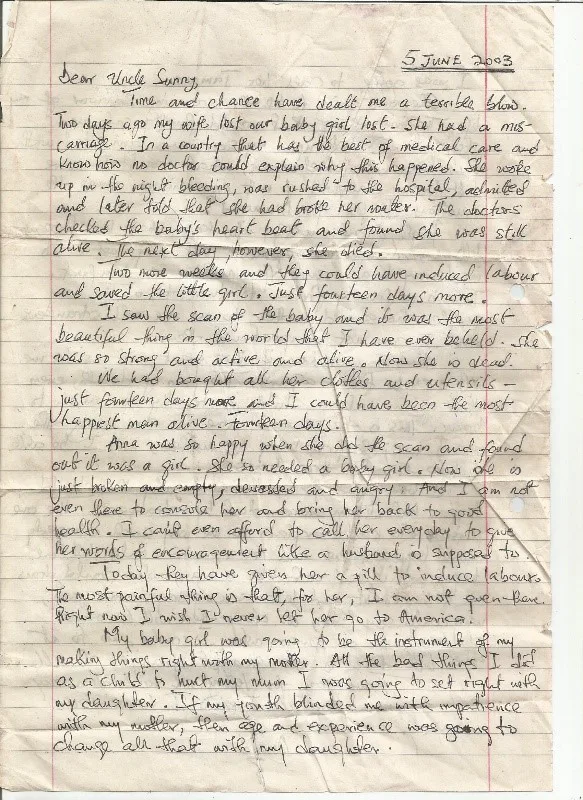 5 JUNE 2003
Dear Uncle Sunny,
Time and chance have dealt me a terrible blow.
Two days ago my wife lost our baby girl lost. She had a mis
carriage. In a country that has the best of medical care and
know how no doctor could explain why this happened. She woke
up in the night bleeding, was rushed to the hospital, admitted
and later told that she had broke her water. The doctors
checked the baby's heart beat and found she was still
alive. The next day, however, she died.
Two more weeks and they could have induced labour
and saved the little girl. Just fourteen days more.
I saw the scan of the baby and it was the most
beautiful thing in the world that I have ever beheld. She
was so strong and active and alive. Now she is dead.
We had bought all her clothes and utensils –
just fourteen days more and I could have been the most
happiest man alive. Fourteen days.
Anna was so happy when she did the scan and found
out it was a girl. She so needed a baby girl. Now she is
just broken and empty, and angry. And I am not
even there to console her and bring her back to good
health. I can't even afford to call her everyday to give
her words of encouragement like a husband is supposed to.
Today they have given her a pill to induce labour.
The most painful thing is that, for her, I am not even there.
Right now I wish I never let her go to America.
My baby girl was going to be the instrument of my
making things right with my mother. All the bad things I did
as a child to hurt my mum I was going to set right with
my daughter. If my youth blinded me with impatience
with my mother, then age and experience was going to
change all that with my daughter.